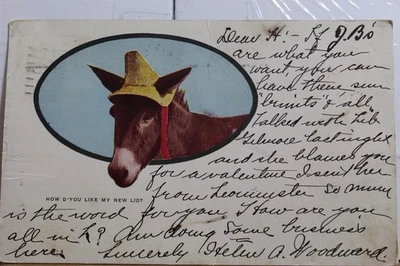 Dear H:- If J.B's
are what you
want, you can
have them, sum
"bruits" & all.
Talked with Lib
Gilmore last night
and she blames you
for a valentine I sent her
from Leominster So mum
is the word for you How are you
all in K? Am doing some business
here. Sincerely Helen A. Woodward.
HOW D'YOU LIKE MY NEW LID?